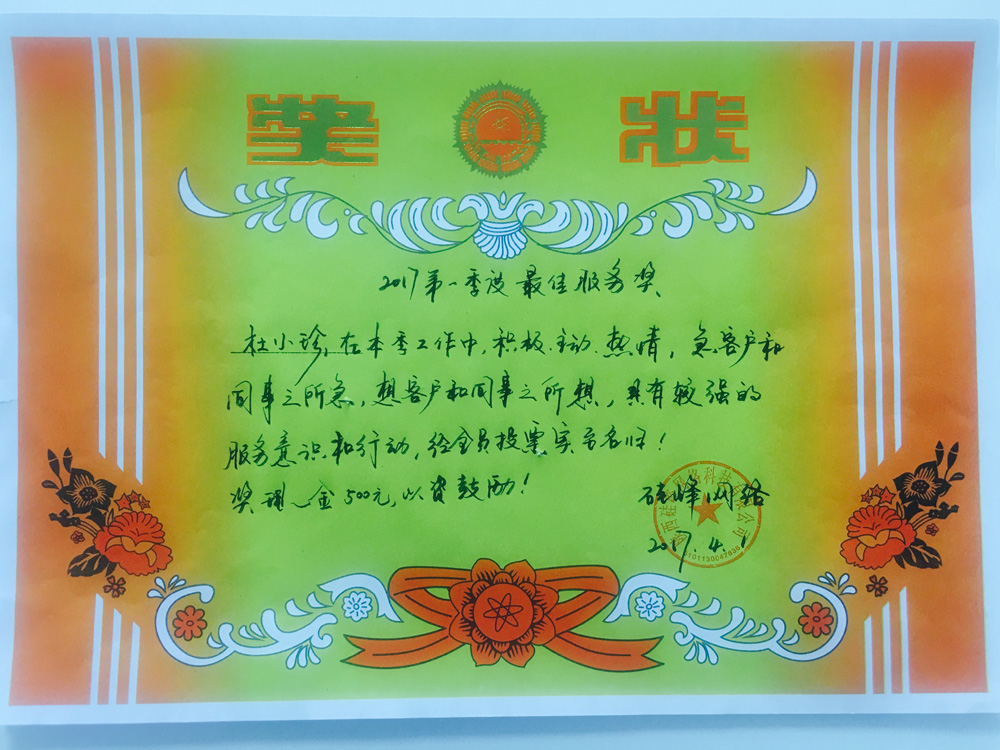 奖状
2017第一季度最佳服务奖
杜小珍,在本季工作中,积极.主动.热情,急客户和
同事之所急,想客户和同事之所想,具有较强的
服务意识和行动,经全员投票实至名归!
奖现金500元,以资鼓励!
硅峰网络
2017.4.1